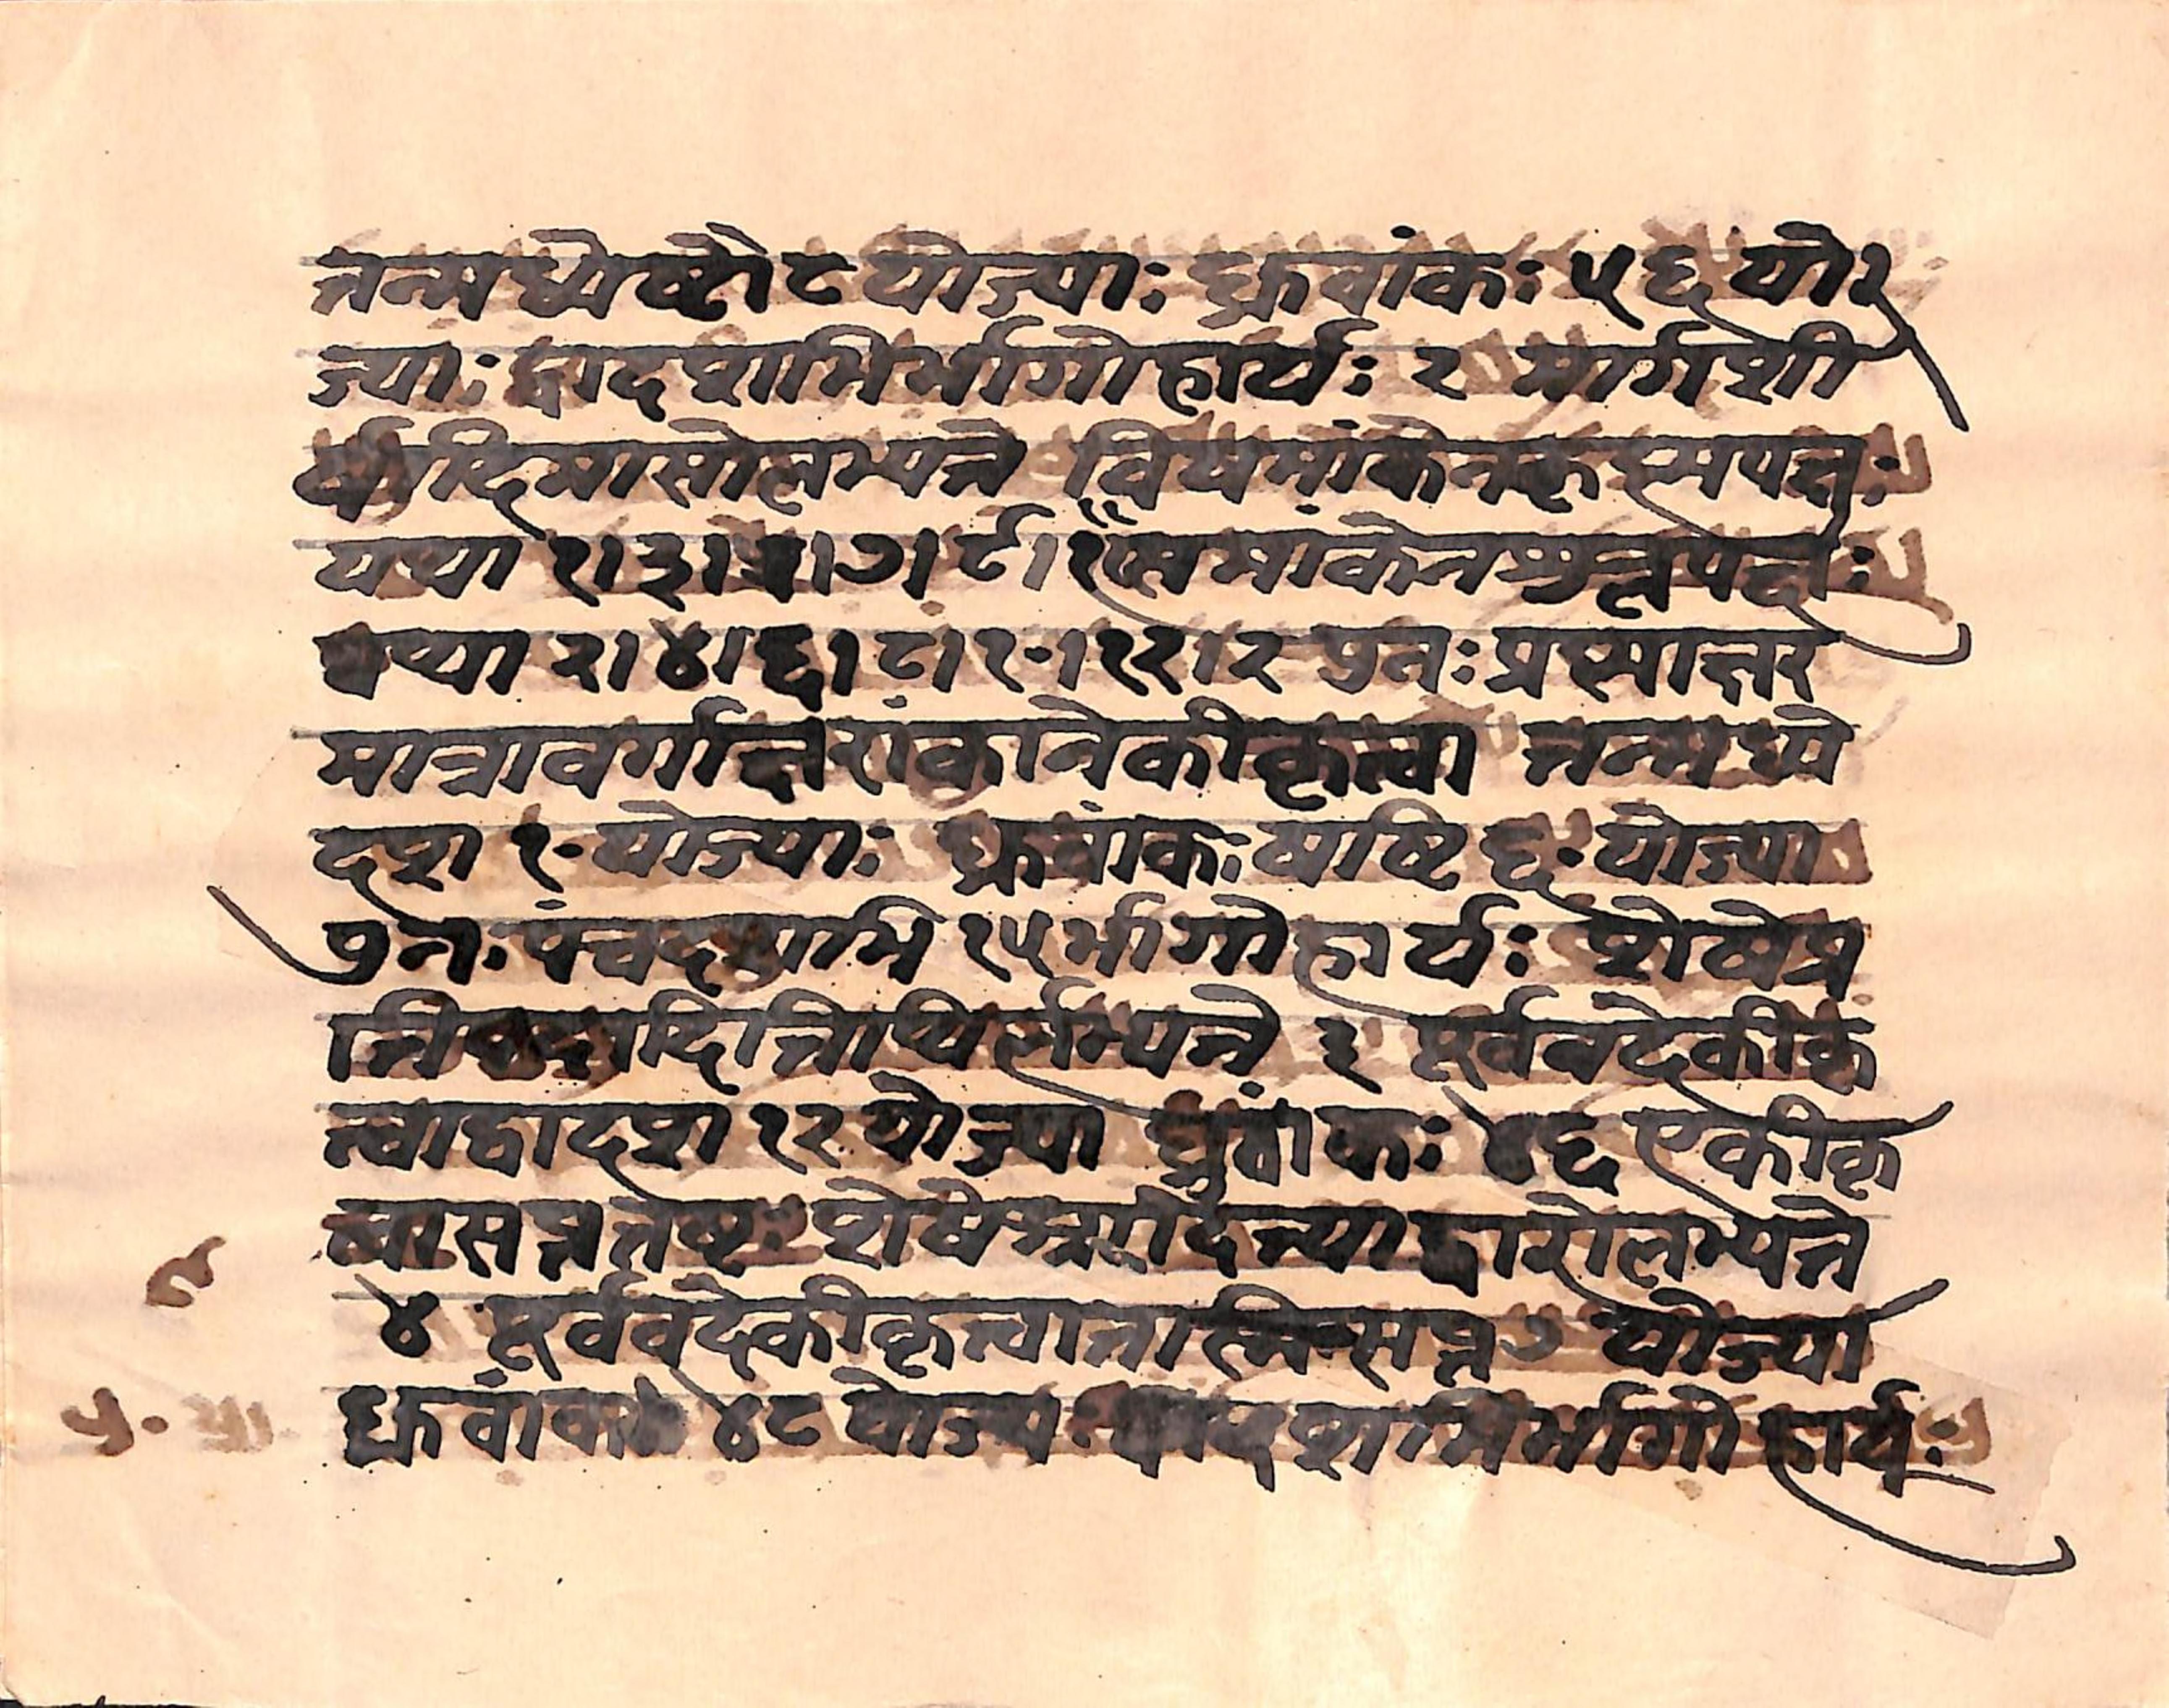 तन्मध्येष्टौ ८ योज्याः ध्रुवांकः ५६ यो
ज्याः द्वादशाभिर्भागोहार्यः २ मार्गशी
र्षादिमासोलभ्यते विषमांकेनकृस्मपक्षः
यथा १।३।५।७।९।११ समांकेनशुक्लपक्षः
यथा २।४।६।८।१०।१२।२ पुनः प्रस्माक्षर
मात्रावर्गाक्षरांकानेकीकृत्वा तन्मध्ये
दश १० योज्याः ध्रुवांकः षाष्टि ६० योज्या
पुनः पंचदशाभि १५ र्भागोहार्यः शेषेप्र
तिपदादितिथिर्लभ्यते ३ पूर्ववदेकीकृ
त्वाद्वादश १२ योज्या ध्रुवांकः ४६ एकीकृ
त्वासप्ततष्टः शेषेआदित्याद्वारोलभ्यते
४ पूर्ववदेकीकृत्वातास्मिसप्त ७ योज्या
ध्रुवांक ४८ योज्य द्वादशाभिर्भागोहार्यः